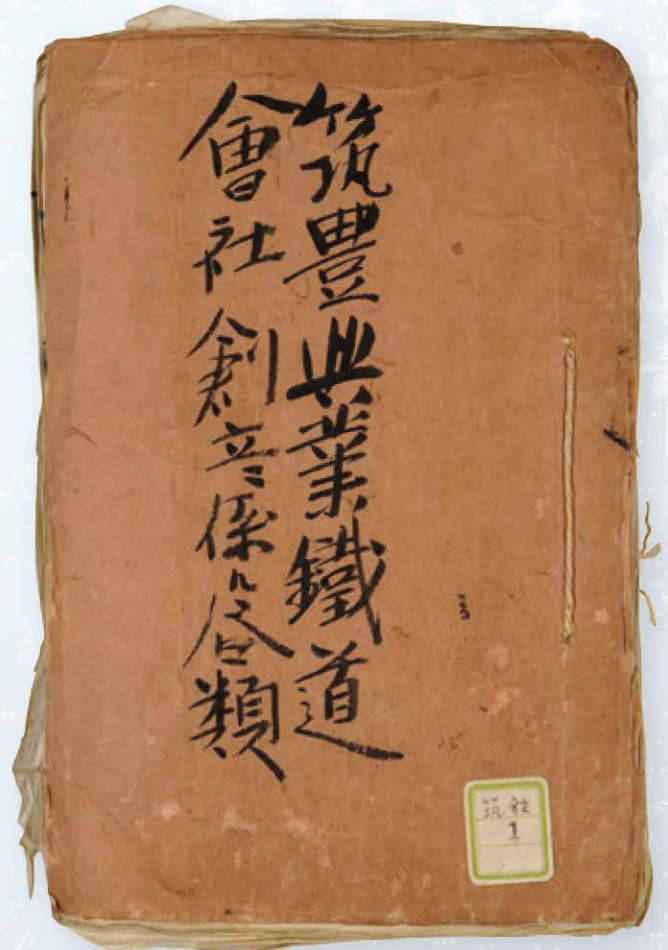 筑豊興業鐵道
會社創立ニ係ル書類
筑鉄
1